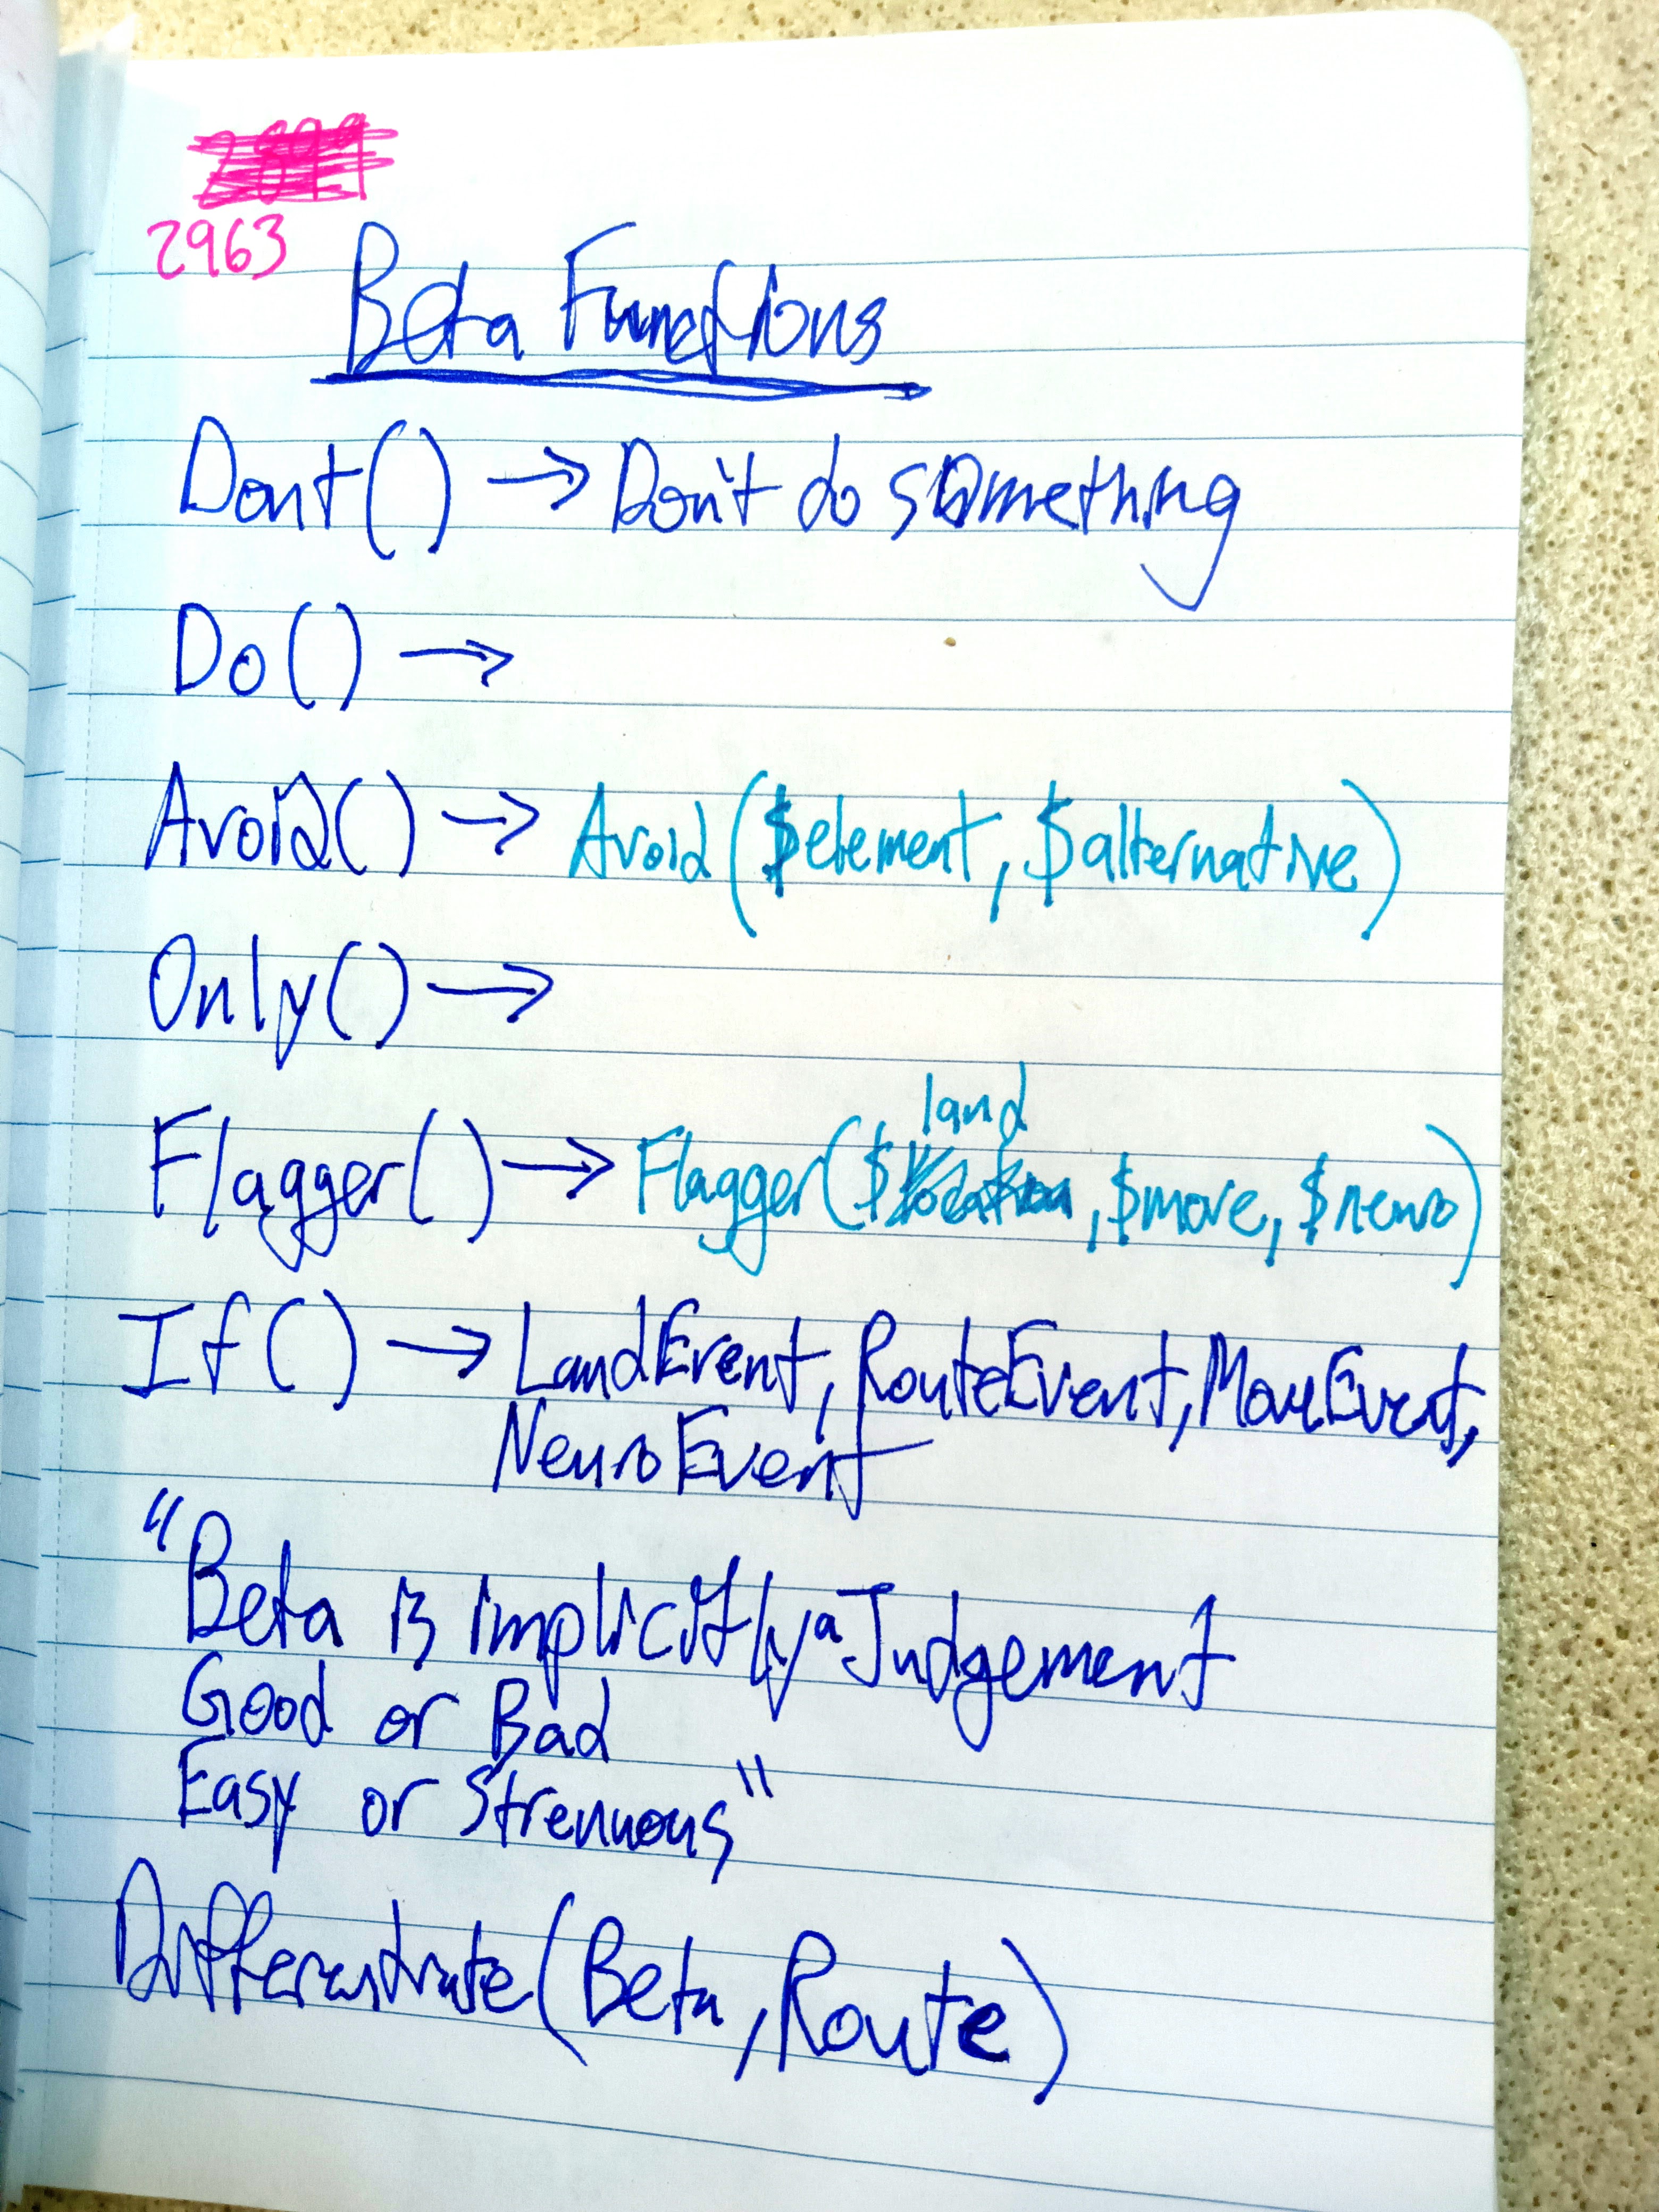 2963
Beta Functions
Dont() → Don't do something
Do() →
Avoid() → Avoid($element, $alternative)
Only() →
land
Flagger() → Flagger($location, $move, $neuro)
If() → LandEvent, RouteEvent, MoveEvent,
NeuroEvent
"Beta is implicitly a Judgement
Good or Bad
Easy or Strenuous"
Differentiate(Beta, Route)